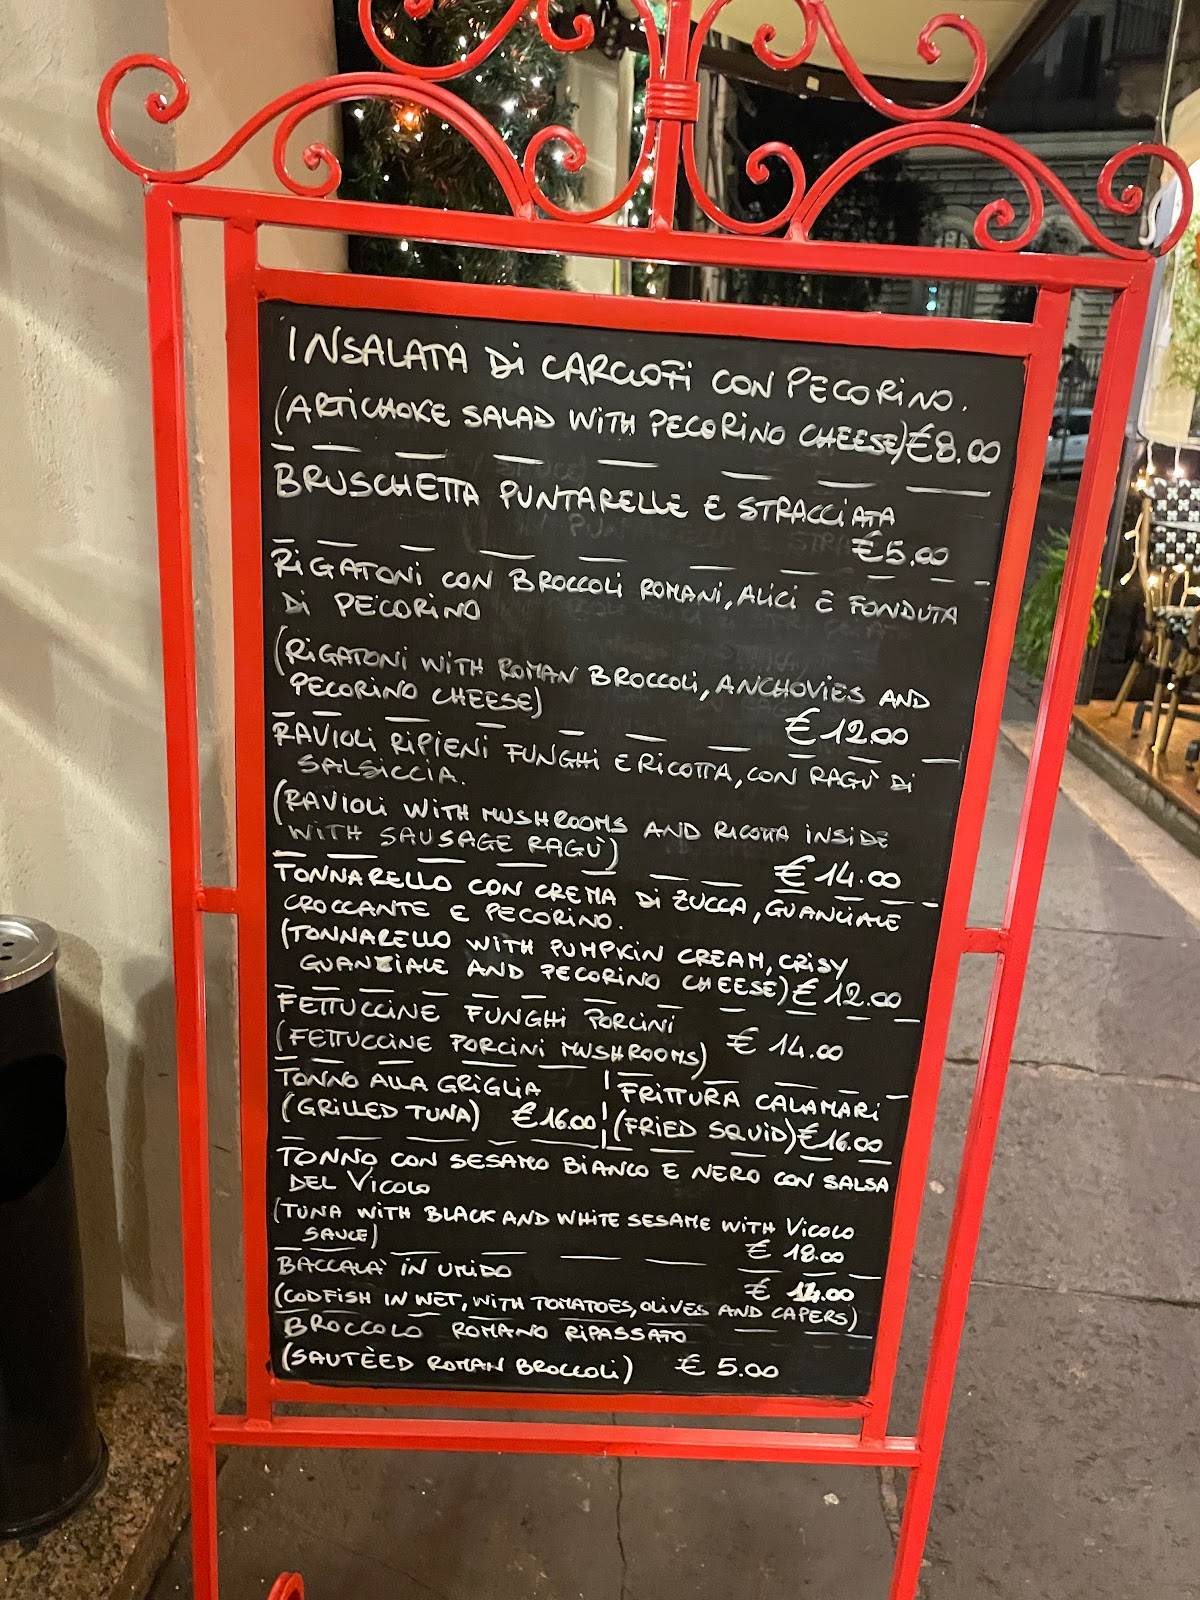 INSALATA Di CARCIOFi CON PECORiNO.
(ARTICHOKE SALAD WiTH PECORiNO CHEESE) € 8.00
BRUSCHETTA PUNTARELLE E STRACCiATA
€ 5.00
RiGATONi CON BROCCOLi ROMANi, ALiCi E FONDUTA
Di PECORINO
(RiGATONi WiTH ROMAN BROCCOLi, ANCHOViES AND
PECORiNO CHEESE)
€ 12.00
RAViOLi RiPiENi FUNGHi E RiCOTTA, CON RAGÙ Di
SALSiCCiA.
(RAViOLi WiTH MUSHROOMS AND RiCOTTA iNSiDE
WiTH SAUSAGE RAGÙ)
€ 14.00
TONNARELLO CON CREMA Di ZUCCA, GUANCiALE
CROCCANTE E PECORiNO.
(TONNARELLO WiTH PUMPKiN CREAM, CRiSY
GUANZiALE AND PECORiNO CHEESE) € 12.00
FETTUCCiNE FUNGHi PORCiNi
€ 14.00
(FETTUCCiNE PORCiNi MUSHROOMS)
TONNO ALLA GRiGLiA
(GRiLLED TUNA) € 16.00
FRiTTURA CALAMARi
(FRiED SQUiD) € 16.00
TONNO CON SESAMO BiANCO E NERO CON SALSA
DEL ViCOLO
(TUNA WiTH BLACK AND WHiTE SESAME WiTH ViCOLO
SAUCE)
€ 18.00
BACCALA' iN UMiDO
€ 14.00
(CODFiSH iN WET, WiTH TOMATOES, OLiVES AND CAPERS)
BROCCOLO ROMANO RiPASSATO
(SAUTÈED ROMAN BROCCOLi) € 5.00